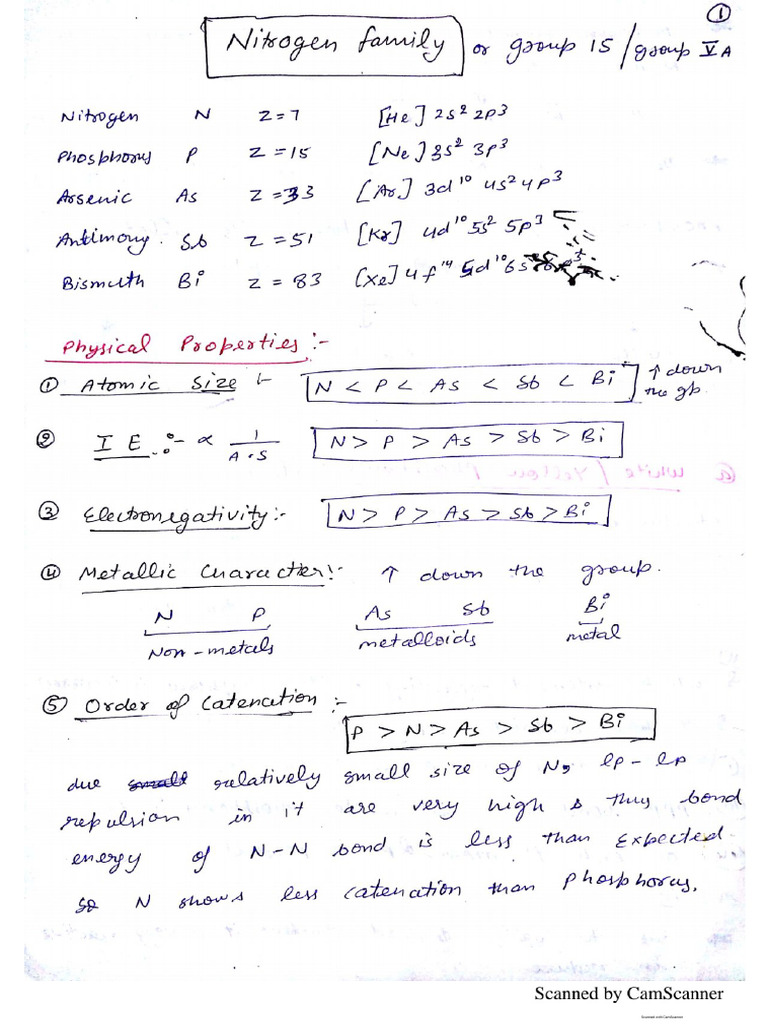 ①
Nitrogen family or group 15 / group V A
Nitrogen N Z=7 [He] 2s² 2p³
Phosphorus P Z=15 [Ne] 3s² 3p³
Arsenic As Z=33 [Ar] 3d¹⁰ 4s² 4p³
Antimony. Sb Z=51 [Kr] 4d¹⁰ 5s² 5p³
Bismuth Bi Z=83 [Xe] 4f¹⁴ 5d¹⁰ 6s
Physical Properties :-
① Atomic Size :- N < P < As < Sb < Bi ↑ down the gp.
② I E :- ∝ 1/A.S N > P > As > Sb > Bi
③ Electronegativity:- N > P > As > Sb > Bi
④ Metallic Character:- ↑ down the group.
N P As Sb Bi
Non-metals metalloids metal
⑤ Order of Catenation :-
P > N > As > Sb > Bi
due relatively small size of N, lp-lp
repulsion in it are very high & thus bond
energy of N-N bond is less than Expected
so N shows less catenation than Phosphorus.
Scanned by CamScanner
Scanned with CamScanner